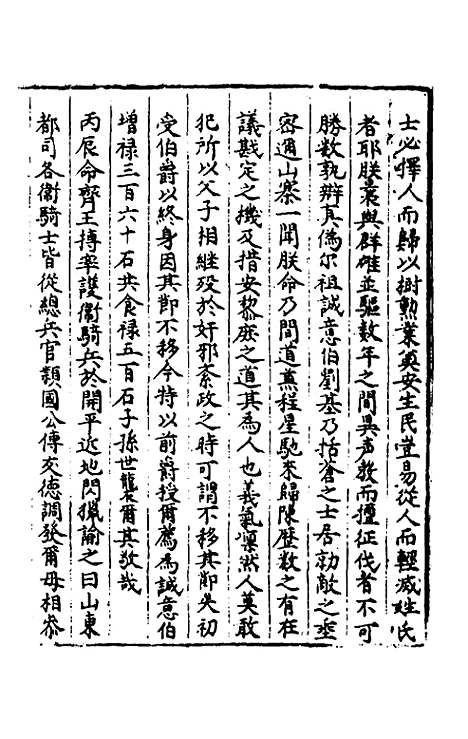 士必擇人而歸以樹勲業奠安生民豈易從人而輕滅姓氏
者耶朕曩與群雄並驅數年之間異声教而擅征伐者不可
勝数孰辨真偽尔祖誠意伯劉基乃括蒼之士居勍敵之
密邇山寨一聞朕命乃間道蒹程星馳来歸陳歷数之有在
議戡定之機及措安黎庶之道其為人也義氣凛然人莫敢
犯所以父子相継殁於奸邪紊政之時可謂不移其節失初
受伯爵以終身因其節不移今特以前爵授爾薦為誠意伯
增禄三百六十石共食禄五百石子孫世襲爾其敬哉
丙辰命齊王摶率護衛騎兵於開平近地閃獵諭之曰山東
都司各衛騎士皆從總兵官頴國公傅友徳調發爾毋相叅